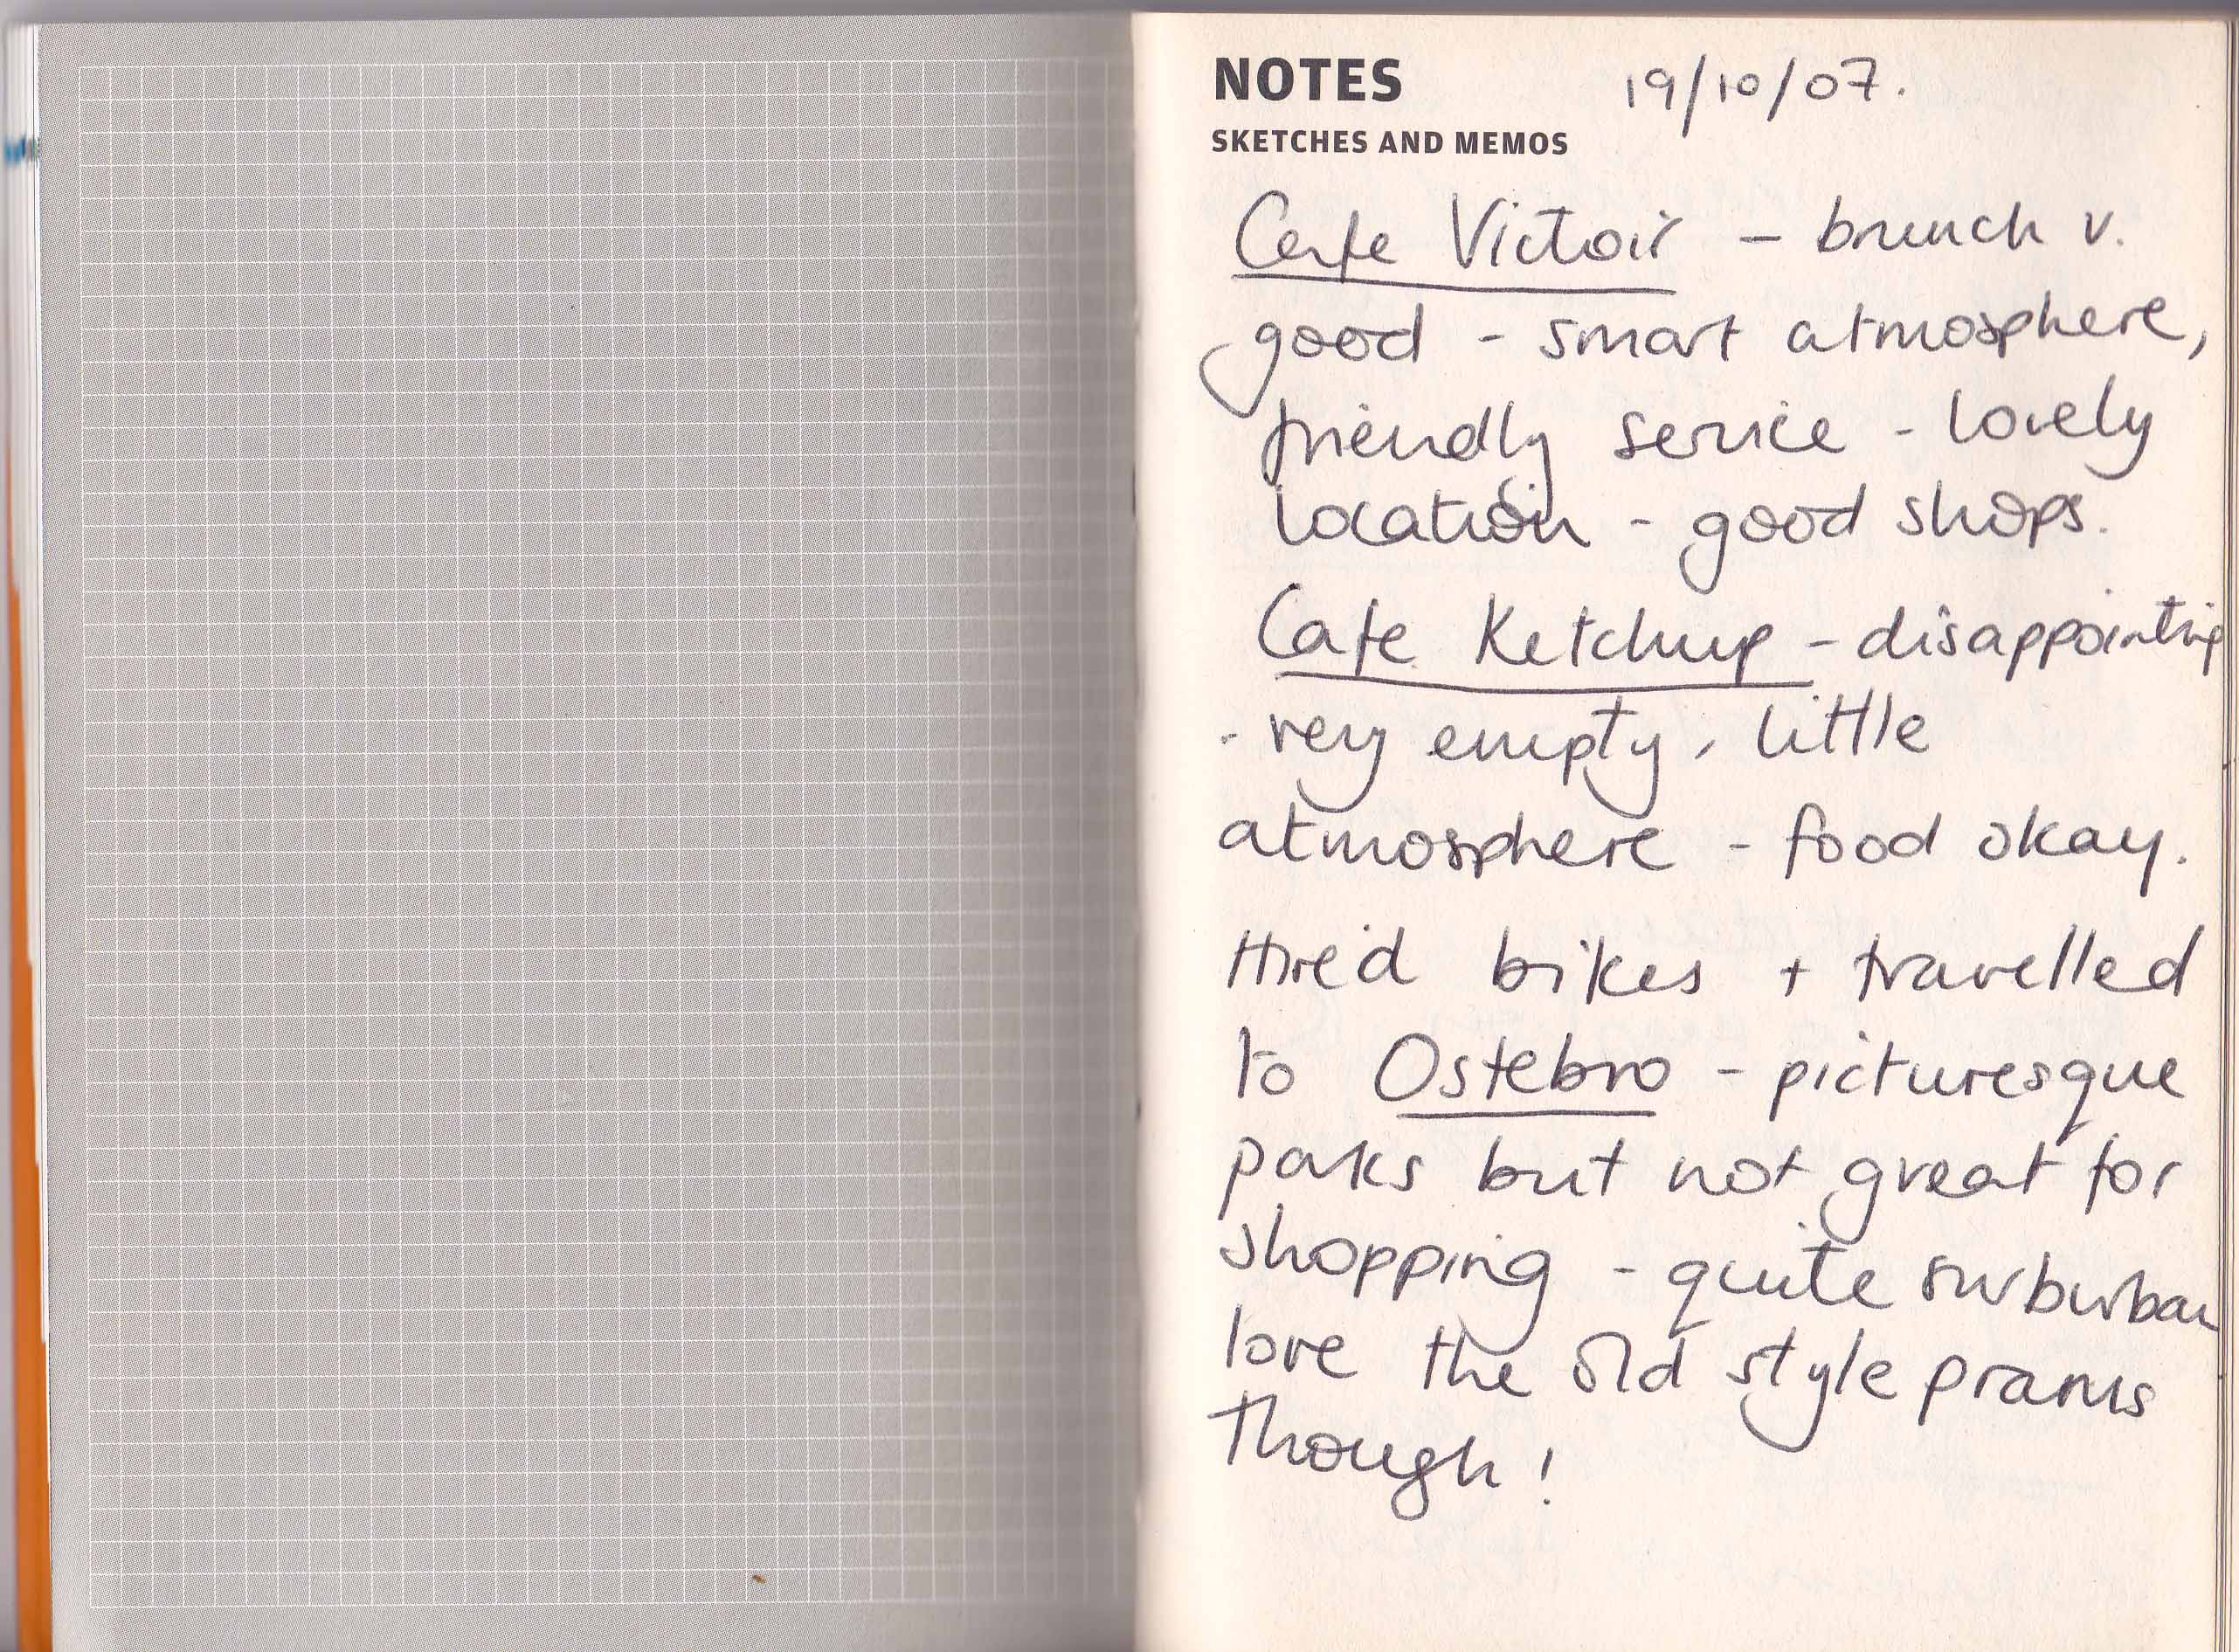 NOTES 19/10/07.
SKETCHES AND MEMOS
Cafe Victoir – brunch v.
good - smart atmosphere,
friendly service - lovely
location - good shops.
Cafe Ketchup - disappointing
- very empty, little
atmosphere - food okay.
Hired bikes + travelled
to Ostebro - picturesque
parks but not great for
shopping - quite surburban
love the old style prams
though!